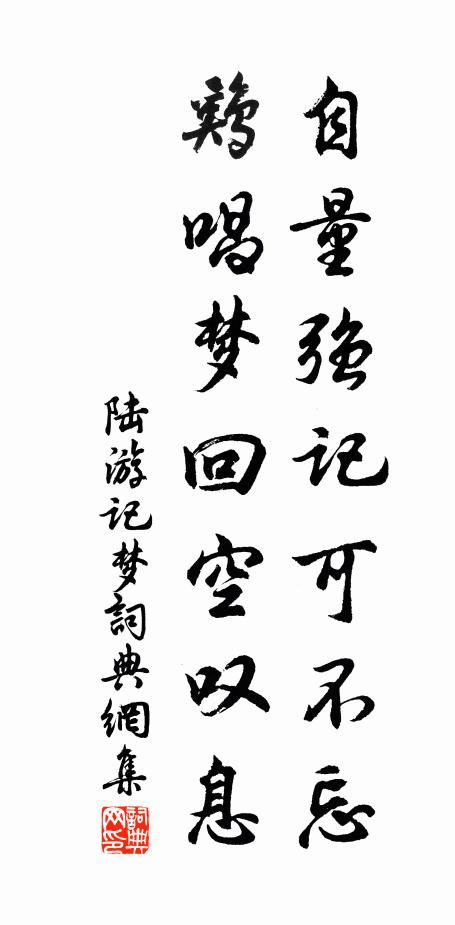 自量强记可不忘
鷄唱梦回空叹息
陆游记梦詞典網集
詞典网印